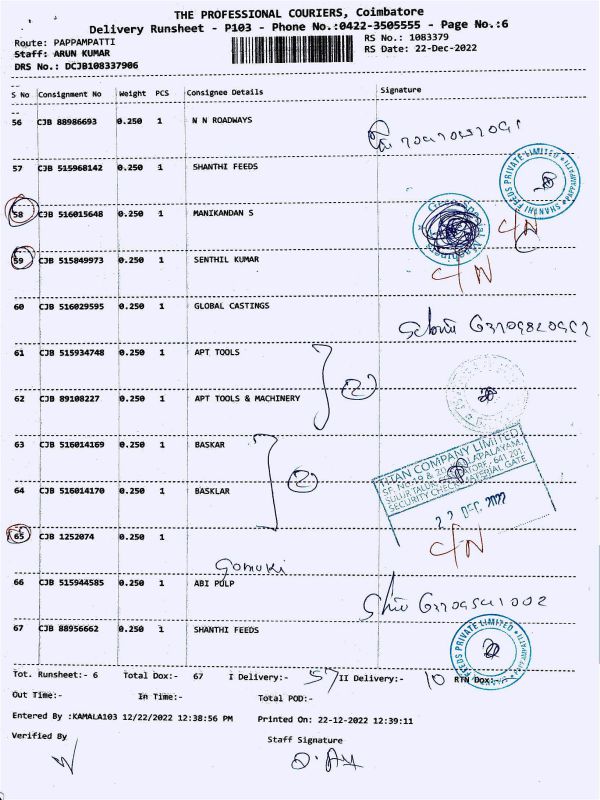 THE PROFESSIONAL COURIERS, Coimbatore
Delivery Runsheet - P103 - Phone No.:0422-3505555 - Page No.:6
Route: PAPPAMPATTI RS No.: 1083379
Staff: ARUN KUMAR RS Date: 22-Dec-2022
DRS No.: DCJB108337906
S No Consignment No Weight PCS Consignee Details Signature
56 CJB 88986693 0.250 1 N N ROADWAYS
57 CJB 515968142 0.250 1 SHANTHI FEEDS
SHANTHI FEEDS PRIVATE LIMITED
58 CJB 516015648 0.250 1 MANIKANDAN S C/N
59 CJB 515849973 0.250 1 SENTHIL KUMAR C/N
60 CJB 516029595 0.250 1 GLOBAL CASTINGS
61 CJB 515934748 0.250 1 APT TOOLS
2
62 CJB 89108227 0.250 1 APT TOOLS & MACHINERY
63 CJB 516014169 0.250 1 BASKAR
TITAN COMPANY LIMITED
SECURITY CHECK MATERIAL GATE
2
64 CJB 516014170 0.250 1 BASKLAR
22 DEC 2022
65 CJB 1252074 0.250 1 C/N
Gomuki
66 CJB 515944585 0.250 1 ABI PULP
67 CJB 88956662 0.250 1 SHANTHI FEEDS
FEEDS PRIVATE LIMITED
Tot. Runsheet:- 6 Total Dox:- 67 I Delivery:- 57 II Delivery:- 10 RTN Dox:-
Out Time:- In Time:- Total POD:-
Entered By :KAMALA103 12/22/2022 12:38:56 PM Printed On: 22-12-2022 12:39:11
Verified By Staff Signature